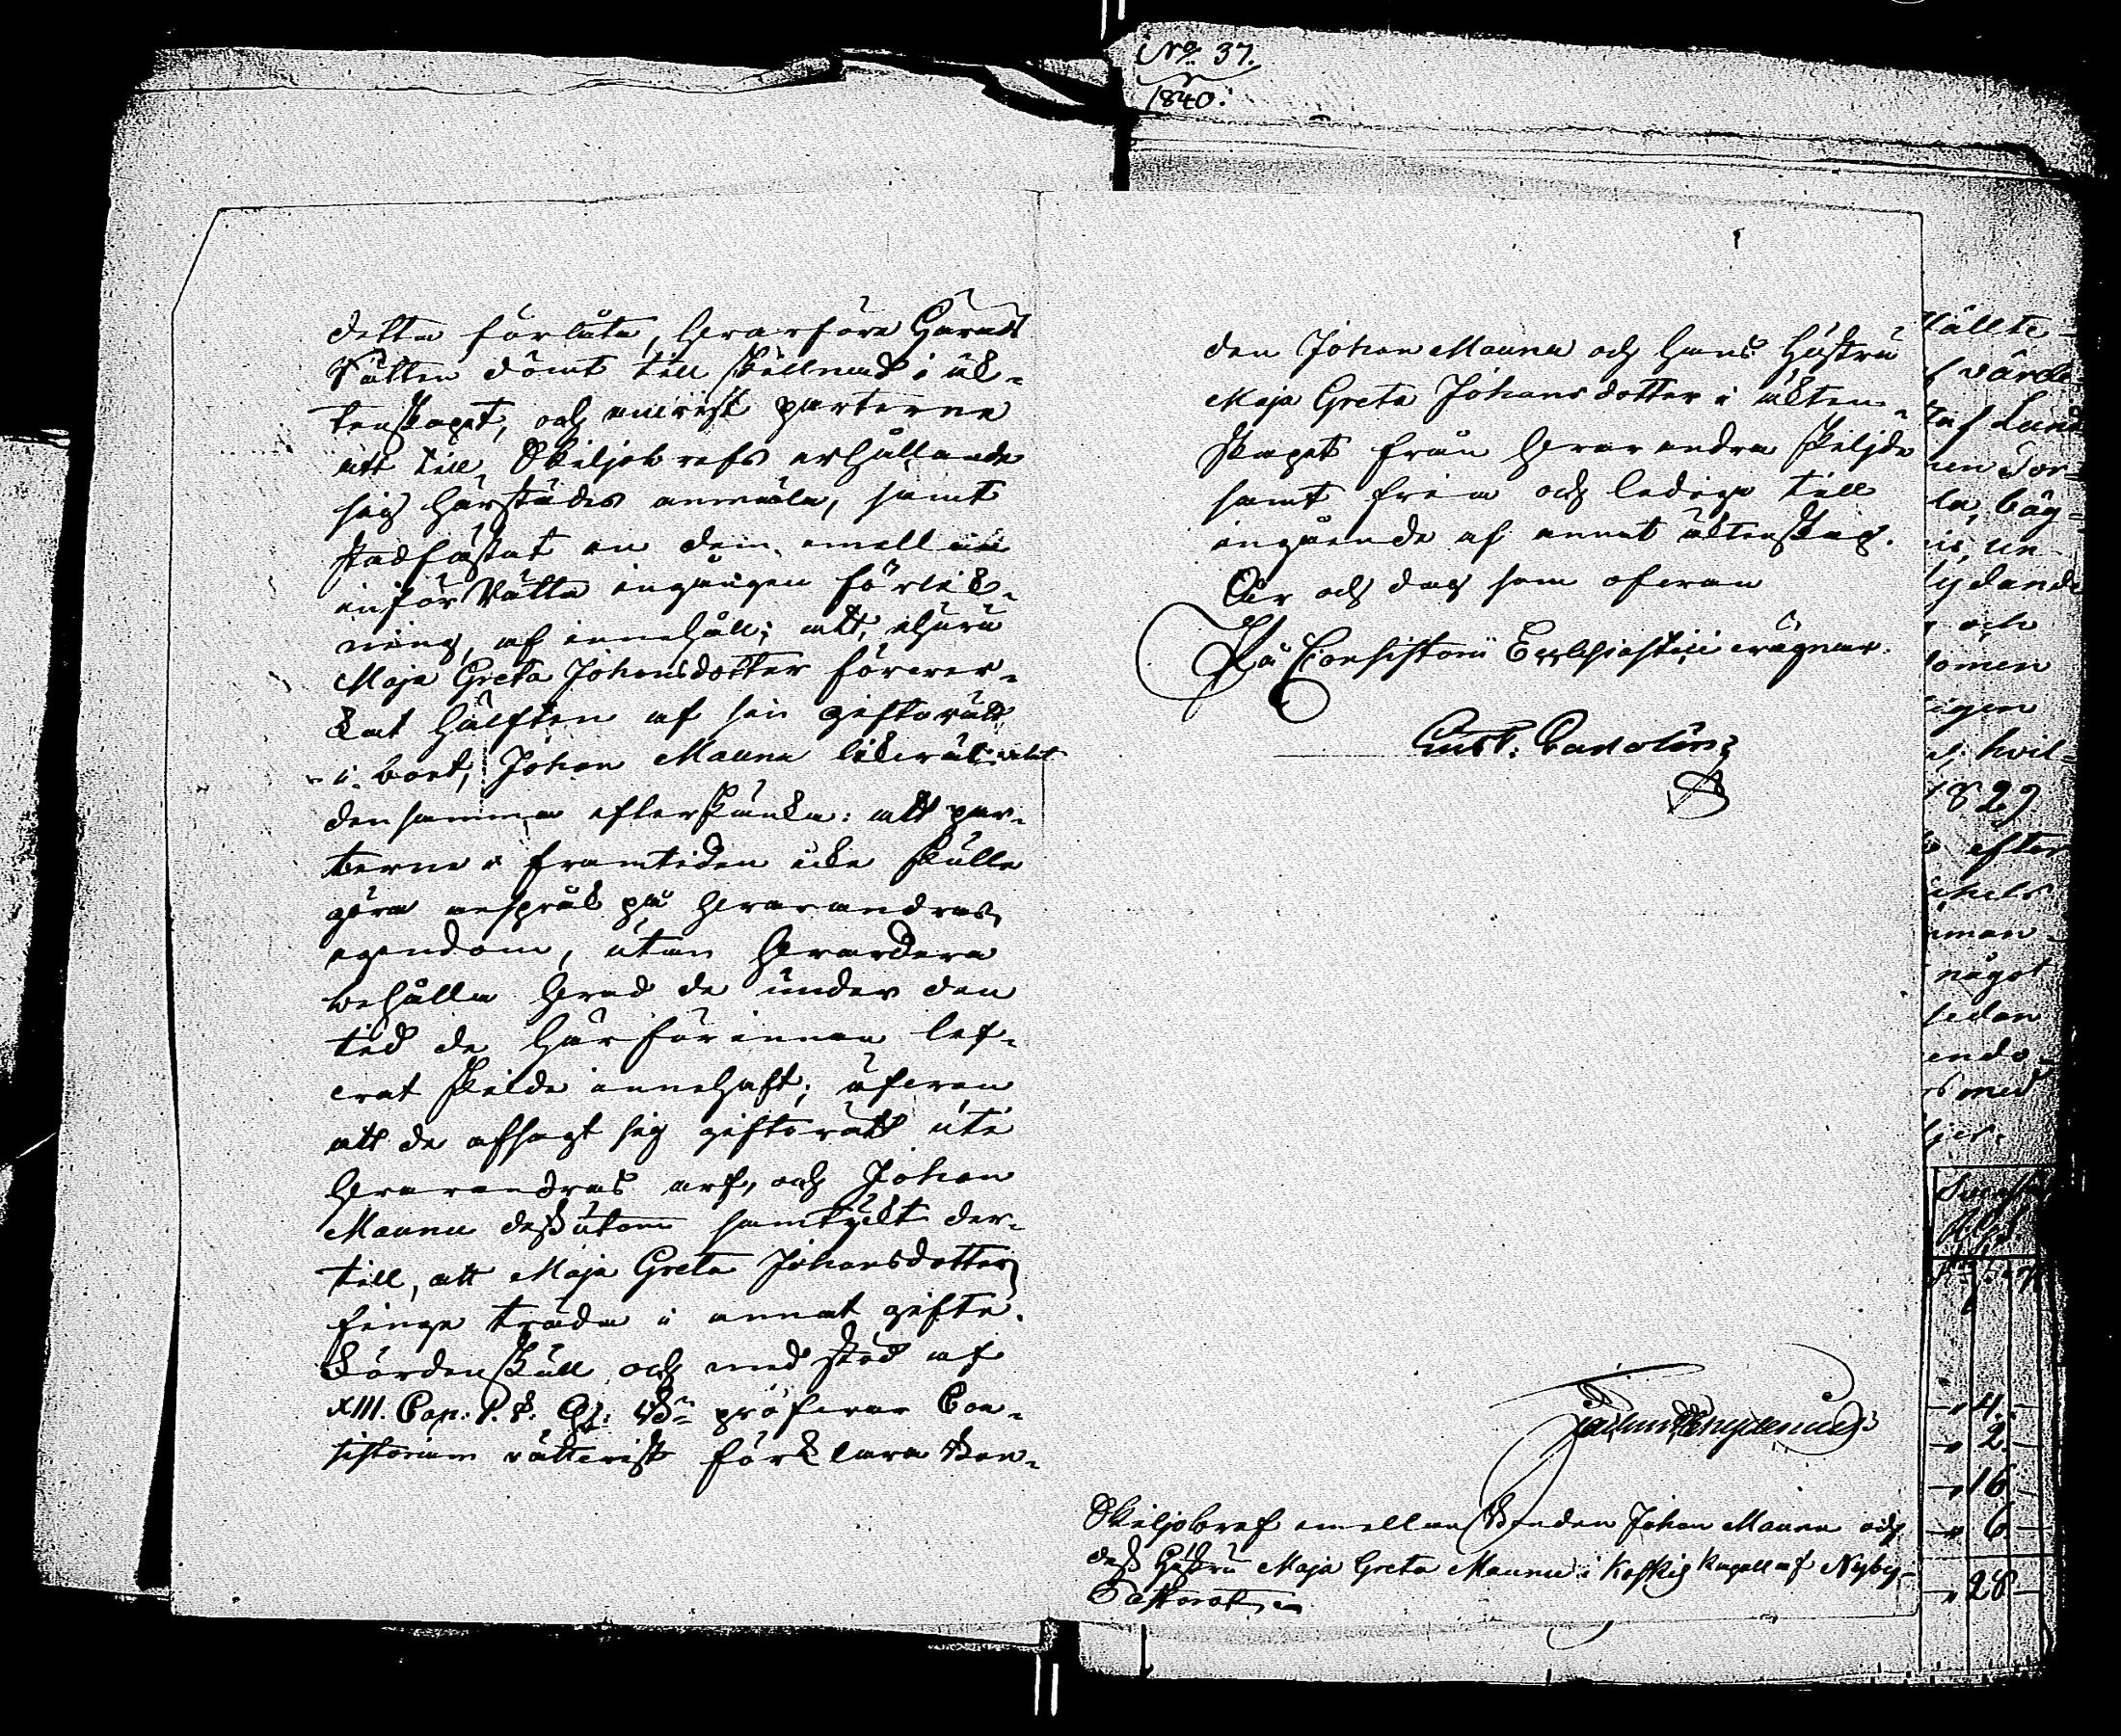 No 37.
1840.
detta förlåta, hvarföre Härads
Rätten dömt till skillnad i äk-
tenskapet, och anvist parterne
att till Skiljobrefs erhållande
sig härstädes anmäla, samt
stadfästat en dem emellan
inför Rätta ingången förlik-
ning, af innehåll; att, ehuru
Maja Greta Johansdotter förver-
kat hälften af sin giftorätt
i boet, Johan Maunu likväl velat
densamma efterskänka: att par-
terne i framtiden icke skulle
göra anspråk på hvarandras
egendom, utan hvardera
behålla hvad de under den
tid de härförinnan lef-
vat skilde innehaft; äfven
att de afsagt sig giftorätt uti
hvarandras arf, och Johan
Maunu dessutom samtyckt der-
till, att Maja Greta Johansdotter
finge träda i annat gifte.
Fördenskull och med stöd af
XIII. Cap. 1. §. G: B: pröfvar Con-
sistorium rättvist förklara Bon-
den Johan Maunu och hans Hustru
Maja Greta Johansdotter i äkten-
skapet från hvarandra skiljde
samt fria och lediga till
ingående af annat äktenskap.
År och dag som ofvan
På Consistorii Ecclesiastici vägnar.
Gust:
Skiljobref emellan Bonden Johan Maunu och
dess Hustru Maja Greta Maunu i Koskis Kapell af Nyby-
Pastorat
ställte
värde
af Lund
och
domen
hvil-
1829
efter
något
sedan
med
4.
2.
16
6
28